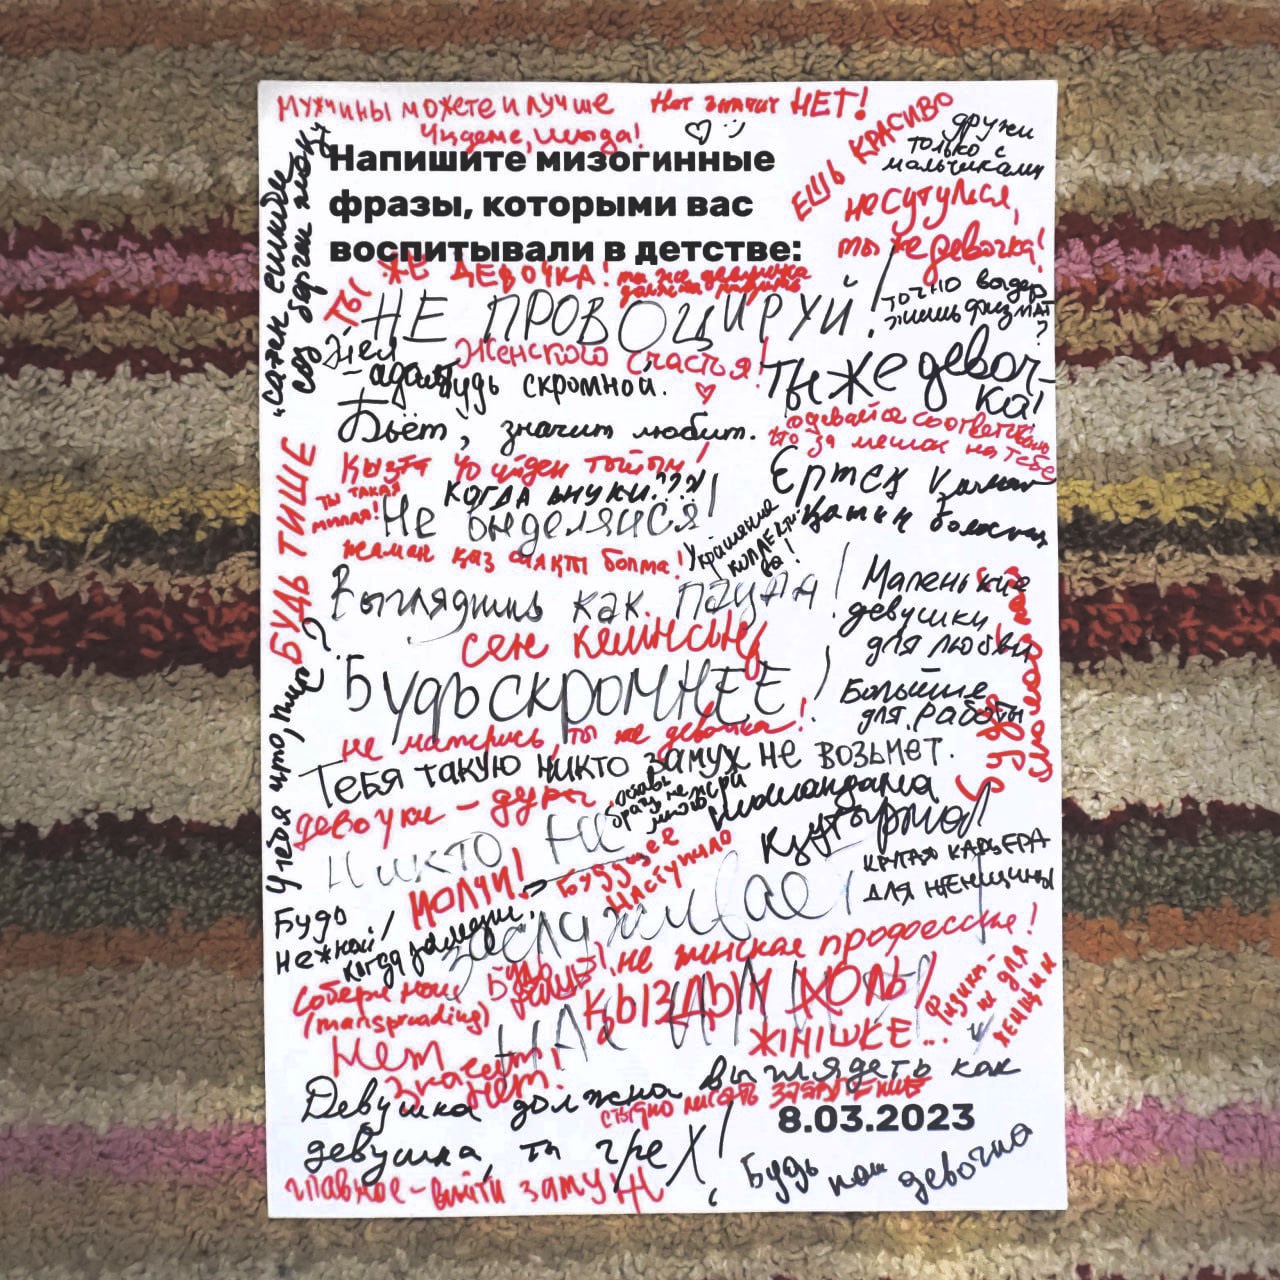 Мужчины можете и лучше
Нет значит НЕТ!
Чудеме, шюда!
ЕШЬ КРАСИВО
дружи
только с
мальчиками
Напишите мизогинные
фразы, которыми вас
воспитывали в детстве:
не сутулься,
ты же девочка!
ТЫ ЖЕ ДЕВОЧКА!
ты же девушка
должна
НЕ ПРОВОЦИРУЙ!
точно выдер
жишь физмат
?
Женского счастья!
Будь скромной.
ты же девоч-
ка!
Бьёт, значит любит.
одевайся соответственно
что за мешок на тебе
Қызға 40 үйден тыйым!
БУДЬ ТИШЕ
ты такая
милая!
КОГДА внуки???
Не выделяйся!
Украшение
коллекти
ва!
жаман қыз сияқты болма!
Выглядишь как пацан!
Маленькие
девушки
для любви
Большие
для работы
сен келінсің
Будь скромнее!
не матерись, ты же девочка!
Тебя такую никто замуж не возьмет.
девочки - дуры
оставь
брату, не жри
много
Шошаңдама
Құтырма!
У тебя что, пмс?
НИКТО НЕ
МОЛЧИ!
Будущее
наступило
КРУТАЯ КАРЬЕРА
ДЛЯ ЖЕНЩИНЫ
заслуживает
Будь
нежной!
когда замуж
не женская профессия!
Собери ноги
(manspreading)
ҚЫЗДЫҢ ЖОЛЫ
ЖІҢІШКЕ...
Физик-
не для
женщин
НАСИЛИЯ
Нет
значит
нет!
Девушка должна выглядеть как
девушка, ты грех!
стыдно писать
8.03.2023
главное - выйти замуж
Будь как девочка